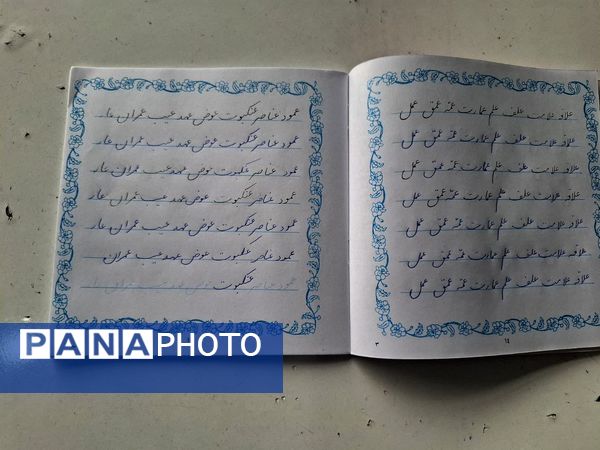 علاقه علامت علف علم عمارت عمه عمق عمل
علاقه علامت علف علم عمارت عمه عمق عمل
علاقه علامت علف علم عمارت عمه عمق عمل
علاقه علامت علف علم عمارت عمه عمق عمل
علاقه علامت علف علم عمارت عمه عمق عمل
علاقه علامت علف علم عمارت عمه عمق عمل
علاقه علامت علف علم عمارت عمه عمق عمل
عمود عناصر عنکبوت عوض عهد عیب عمران عار
عمود عناصر عنکبوت عوض عهد عیب عمران عار
عمود عناصر عنکبوت عوض عهد عیب عمران عار
عمود عناصر عنکبوت عوض عهد عیب عمران عار
عمود عناصر عنکبوت عوض عهد عیب عمران عار
عمود عناصر عنکبوت عوض عهد عیب عمران
عمود عناصر عنکبوت عوض عهد عیب عمران عار
PANAPHOTO